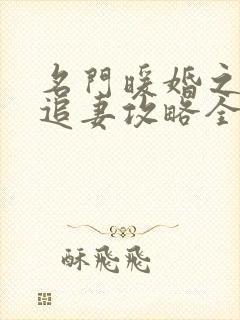 名門暖婚之
追妻攻略全
酥飛飛